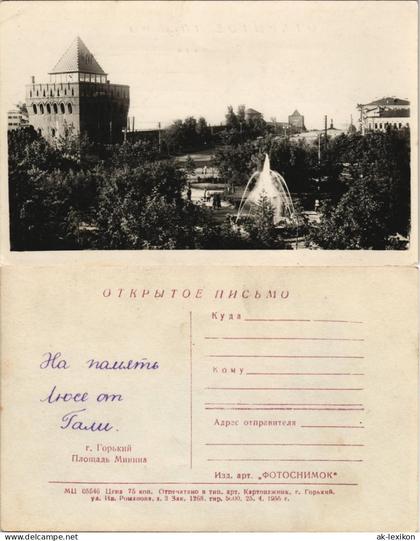 ОТКРЫТОЕ ПИСЬМО
На память
Люсе от
Гали.
г. Горький
Площадь Минина
Куда
Кому
Адрес отправителя
Изд. арт. „ФОТОСНИМОК“
МЦ 05546 Цена 75 коп. Отпечатано в тип. арт. Картонажник, г. Горький,
ул. Ив. Романова, д. 3 Зак. 1268, тир. 5000, 25. 4. 1956 г.
ak-lexikon